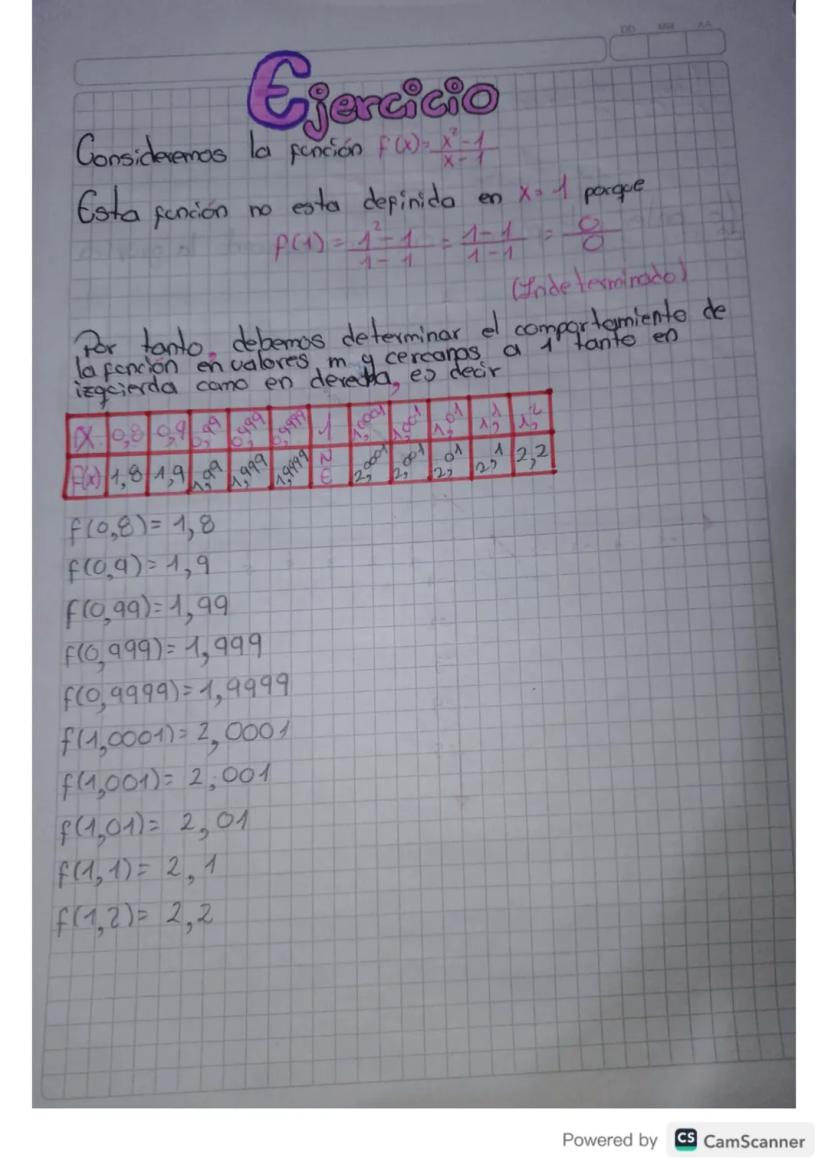 DD MM AA
Ejercicio
Consideremos la función f(x)= x²-1 / x-1
Esta función no esta definida en x=1 porque
f(1) = 1²-1 / 1-1 = 1-1 / 1-1 = 0 / 0
(Indeterminado)
Por tanto, debemos determinar el comportamiento de
la función en valores m y cercanos a 1 tanto en
izquierda como en derecha, es decir
x 0,8 0,9 0,99 0,999 0,9999 1 1,0001 1,001 1,01 1,1 1,2
f(x) 1,8 1,9 1,99 1,999 1,9999 NE 2,0001 2,001 2,01 2,1 2,2
f(0,8)= 1,8
f(0,9)= 1,9
f(0,99)= 1,99
f(0,999)= 1,999
f(0,9999)= 1,9999
f(1,0001)= 2,0001
f(1,001)= 2,001
f(1,01)= 2,01
f(1,1)= 2,1
f(1,2)= 2,2
Powered by CS CamScanner